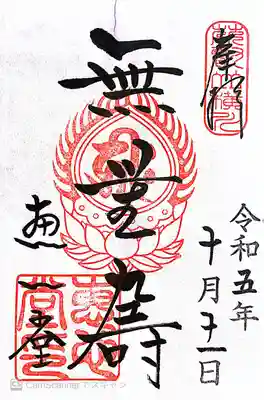 奉拝
無量寿
恵心堂
令和五年
十月廿一日
CamScanner でスキャン